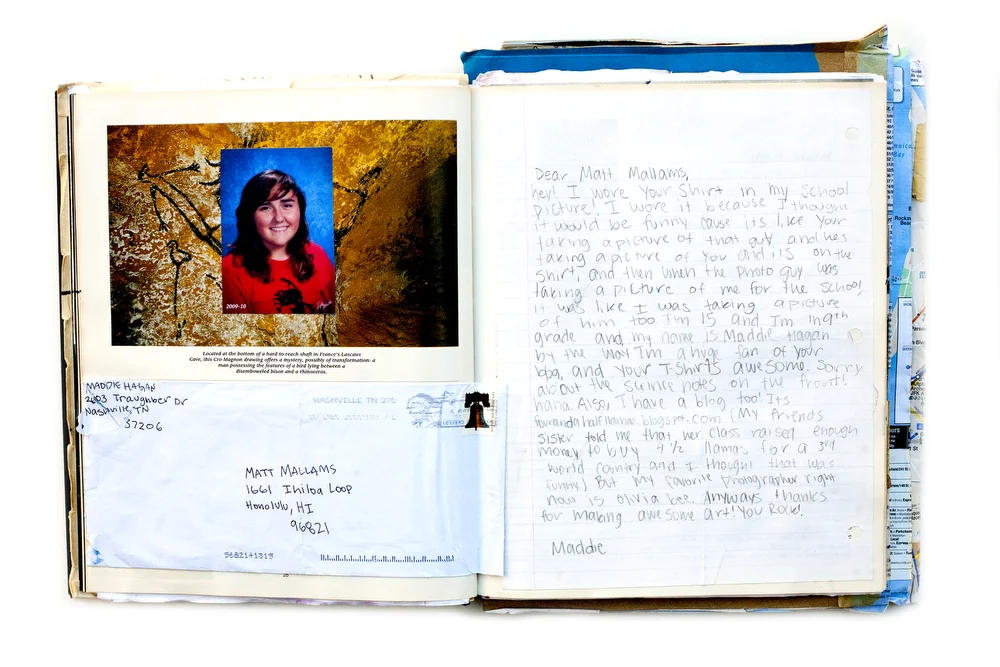 2009-10
Located at the bottom of a hard-to-reach shaft in France's Lascaux
Cave, this Cro-Magnon drawing offers a mystery, possibly of transformation: a
man possessing the features of a bird lying between a
disemboweled bison and a rhinoceros.
MADDIE HAGAN
2003 Traughber Dr
Nashville, TN
37206
NASHVILLE TN 370
MATT MALLAMS
1661 Ihiloa Loop
Honolulu, HI
96821
96821+1313
Dear Matt Mallams,
hey! I wore your shirt in my school
picture! I wore it because I thought
it would be funny cause its like your
taking a picture of that guy and hes
taking a picture of you and its on the
shirt, and then when the photo guy was
taking a picture of me for the school,
it was like I was taking a picture
of him too I'm 15 and I'm in 9th
grade and my name is Maddie Hagan
by the way I'm a huge fan of your
blog, and your T-Shirts awesome. Sorry
about the science notes on the front!
haha. Also, I have a blog too! Its
fourandahalfllamas.blogspot.com (My friends
sister told me that her class raised enough
money to buy 4 1/2 llamas for a 3rd
world country and I thought that was
funny) But my favorite photographer right
now is olivia bee. Anyways thanks
for making awesome art! You Rock!
Maddie